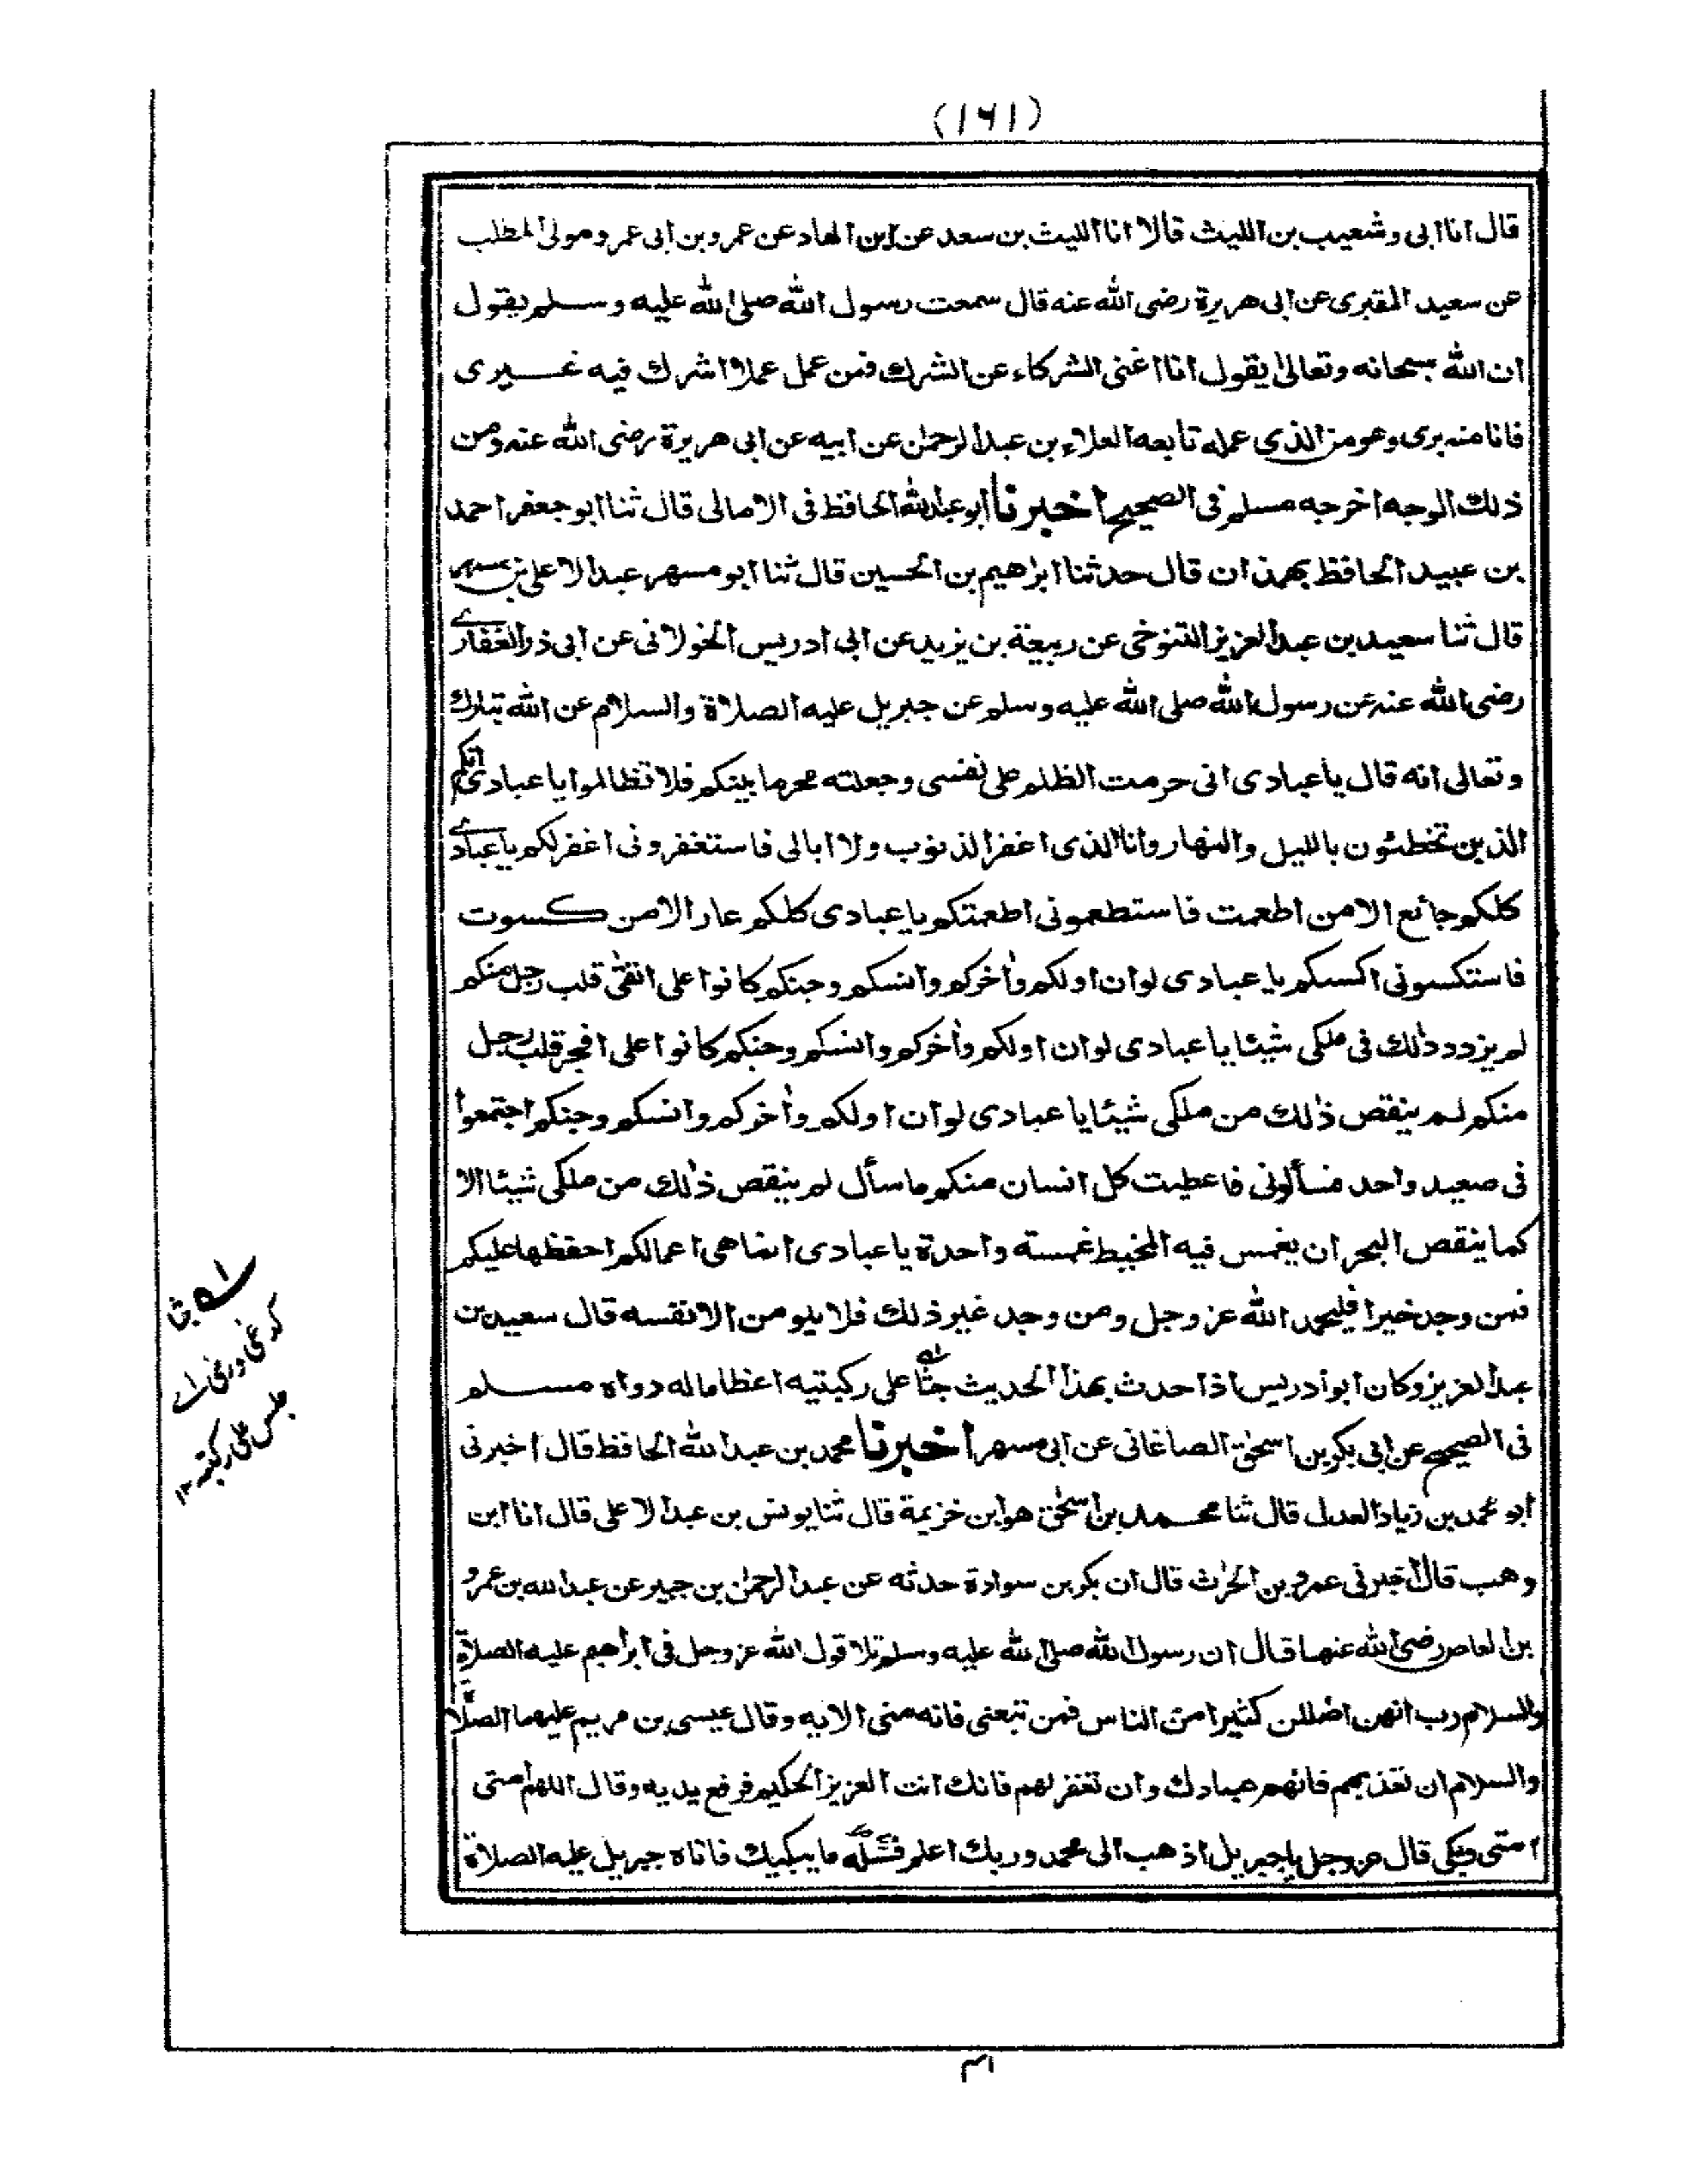 (١٦١)
قال انا ابى وشعيب بن الليث قالا انا الليث بن سعد عن ابن الهاد عن عمرو بن ابى عمرو مولى المطلب
عن سعيد المقبرى عن ابى هريرة رضى الله عنه قال سمعت رسول الله صلى الله عليه وسلم يقول
ان الله سبحانه وتعالى يقول انا اغنى الشركاء عن الشرك فمن عمل عملا اشرك فيه غيرى
فانا منه برى وهو من الذى عمله تابعه العلاء بن عبد الرحمٰن عن ابيه عن ابى هريرة رضى الله عنه ومن
ذلك الوجه اخرجه مسلم فى الصحيح اخبرنا ابو عبد الله الحافظ فى الامالى قال ثنا ابو جعفر احمد
بن عبيد الحافظ بهمذان قال حدثنا ابراهيم بن الحسين قال ثنا ابو مسهر عبد الاعلى بن مسهر
قال ثنا سعيد بن عبد العزيز التنوخى عن ربيعة بن يزيد عن ابى ادريس الخولانى عن ابى ذر الغفارى
رضى الله عنه عن رسول الله صلى الله عليه وسلم عن جبريل عليه الصلاة والسلام عن الله تبارك
وتعالى انه قال يا عبادى انى حرمت الظلم على نفسى وجعلته محرما بينكم فلا تظالموا يا عبادى انكم
الذين تخطئون بالليل والنهار وانا الذى اغفر الذنوب ولا ابالى فاستغفرونى اغفر لكم يا عبادى
كلكم جائع الا من اطعمت فاستطعمونى اطعمتكم يا عبادى كلكم عار الا من كسوت
فاستكسونى اكسكم يا عبادى لو ان اولكم وأخركم وانسكم وجنكم كانوا على اتقى قلب رجل منكم
لم يزدد ذلك فى ملكى شيئا يا عبادى لو ان اولكم وأخركم وانسكم وجنكم كانوا على افجر قلب رجل
منكم لم ينقص ذٰلك من ملكى شيئا يا عبادى لو ان اولكم وأخركم وانسكم وجنكم اجتمعوا
فى صعيد واحد فسألونى فاعطيت كل انسان منكم ما سأل لم ينقص ذٰلك من ملكى شيئا الا
كما ينقص البحر ان يغمس فيه المخيط غمسته واحدة يا عبادى انما هى اعمالكم احفظها عليكم
فمن وجد خيرا فليحمد الله عز وجل ومن وجد غير ذلك فلا يلومن الا نفسه قال سعيد بن
عبد العزيز وكان ابو ادريس اذا حدث بهذا الحديث جثا على ركبتيه اعظاما له رواه مسلم
فى الصحيح عن ابى بكر بن اسحٰق الصاغانى عن ابى مسهر اخبرنا محمد بن عبد الله الحافظ قال اخبرنى
ابو محمد بن زياد العدل قال ثنا محمد بن اسحٰق هو ابن خزيمة قال ثنا يونس بن عبد الاعلى قال انا ابن
وهب قال اخبرنى عمرو بن الحٰرث قال ان بكر بن سوادة حدثه عن عبد الرحمٰن بن جبير عن عبد الله بن عمرو
بن العاص رضى الله عنهما قال ان رسول الله صلى الله عليه وسلم تلا قول الله عز وجل فى ابراهيم عليه الصلاة
والسلام رب انهن اضللن كثيرا من الناس فمن تبعنى فانه منى الايه وقال عيسى بن مريم عليهما الصلاة
والسلام ان تعذبهم فانهم عبادك وان تغفر لهم فانك انت العزيز الحكيم فرفع يديه وقال اللهم امتى
امتى وبكى قال عز وجل يا جبريل اذهب الى محمد وربك اعلم فسئله ما يبكيك فاتاه جبريل عليه الصلاة
كدعى ورمى اے
جلس على ركبتيه ١٢